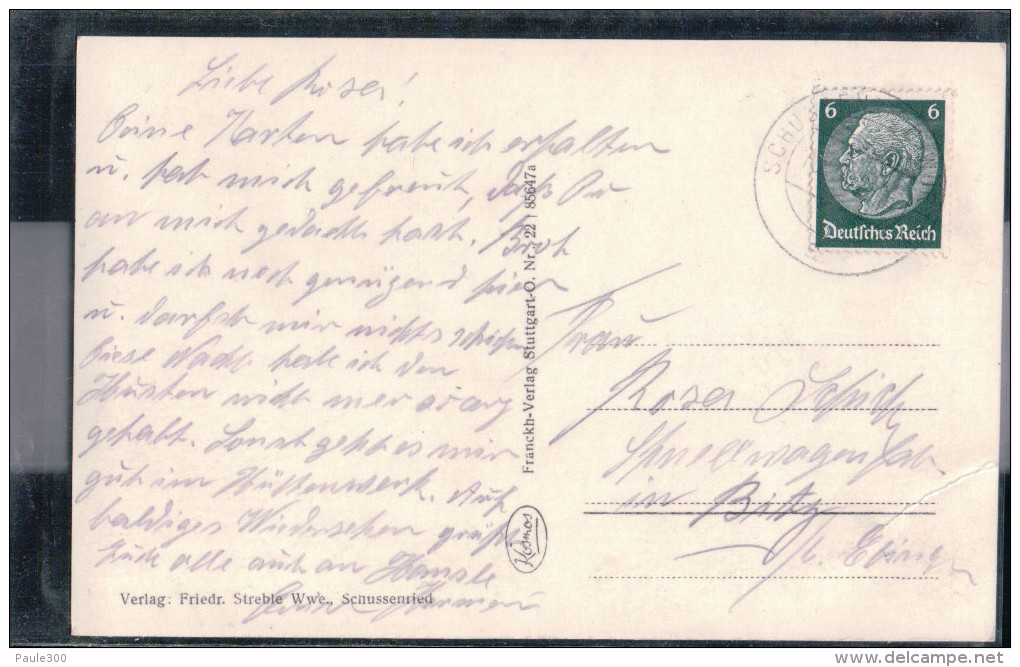 Liebe Rosa!
Deine Karten habe ich erhalten
u. hat mich gefreut, daß Du
an mich gedacht hast. Brot
habe ich noch genügend hier
u. darfst mir nichts schicken
Diese Nacht habe ich den
Husten nicht mer so arg
gehabt. Sonst geht es mir
gut im Hüttenwerk. Auf
baldiges Wiedersehen grüßt
Euch alle auch an
Verlag: Friedr. Streble Wwe., Schussenried
Franckh-Verlag Stuttgart-O. Nr. 22 / 85647a
Kosmos
SCHUSSEN
6 6
Deutsches Reich
Frau
Rosa Schick
Schnellwagenfab.
in Bitz
b. Ebingen
Paule300
delcampe.net